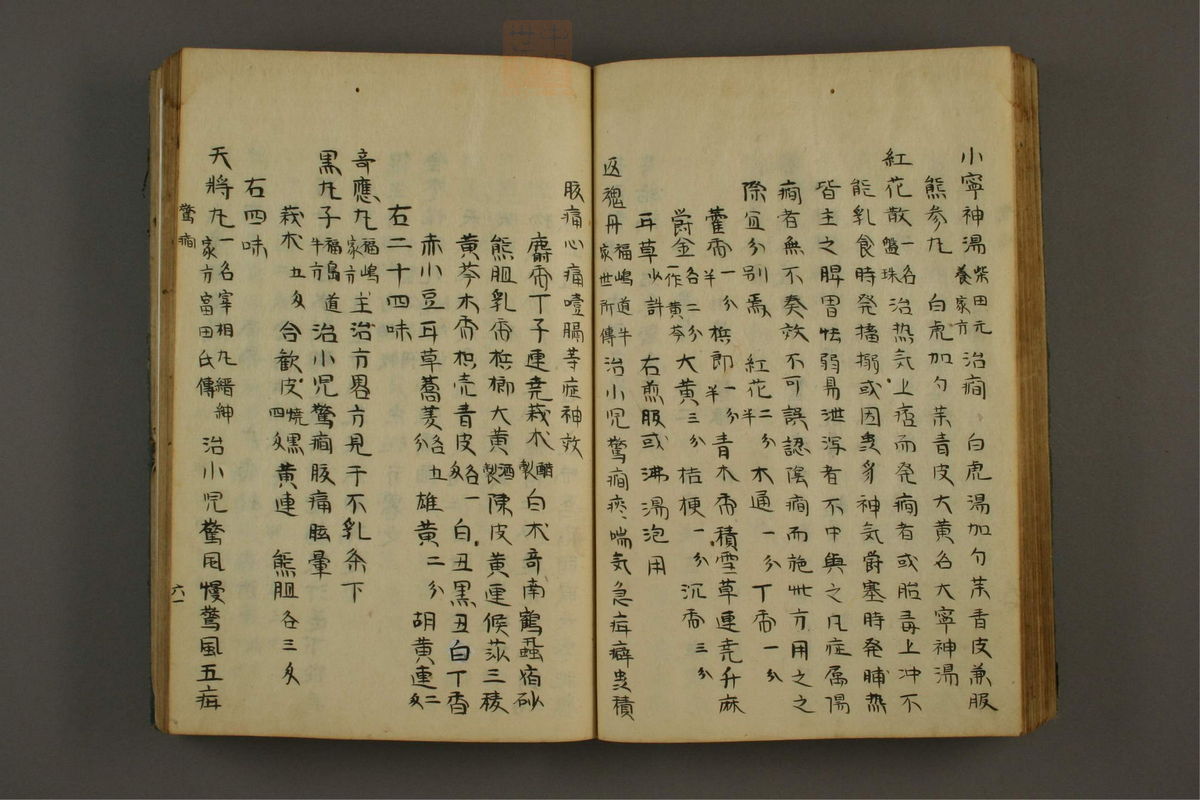 小寧神湯柴田元養家方治癇、白虎湯加勺茉青皮兼服
熊参丸 白虎加勺茉青皮大黄名大寧神湯
紅花散一名盤珠治热気上痙而発癇者或胎毒上冲不
能乳食時発搐搦或因虫多神気爵塞時発脯热
皆主之脾胃怯弱易泄泻者不中與之凡症属陽
癇者無不奏效不可誤認陰癇而施此方用之之
際宜分别焉 紅花二分半木通一分丁香一分
藿香一分半梹郎一分半青木香積雪草連尭升麻
爵金一作黄芩各二分大黄三分桔梗一分沉香三分
耳草少許 右煎服或沸湯泡用
返魂丹福嶋道牛家世所傳治小児驚癇痰喘気急疳癖虫積
腹痛心痛噎膈等症神效
麝香丁子連尭莪朮醋製白朮奇南鶴蝨宿砂
熊胆乳香梹榔大黄酒製陳皮黄連候莎三稜
黄芩木香枳壳青皮各一匁白丑黒丑白丁香
赤小豆耳草蕎麦各五分雄黄二分胡黄連二匁
右二十四味
奇應丸福嶋家方主治方畧方見于不乳条下
黒丸子福島道牛方治小児驚癇腹痛眩暈
莪朮五匁合歓皮燒黒四匁黄連 熊胆各三匁
右四味
天將丸一名宰相丸縉紳家方富田氏傳治小児驚風慢驚風五疳
驚癇
六一